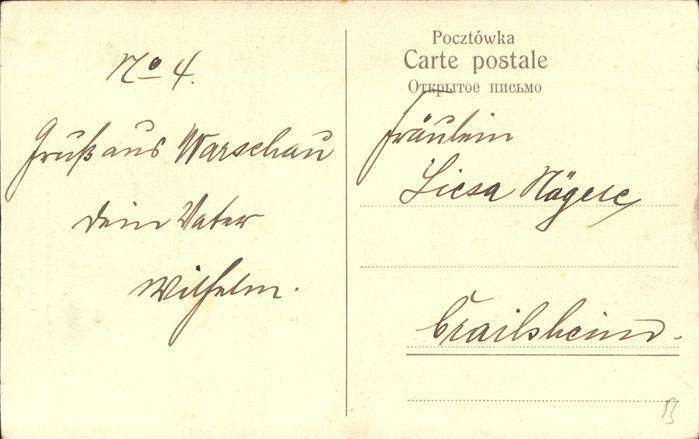 No 4.
Gruß aus Warschau
Dein Vater
Wilhelm.
Pocztówka
Carte postale
Открытое письмо
Fräulein
Liesa Nägele
Crailsheim.